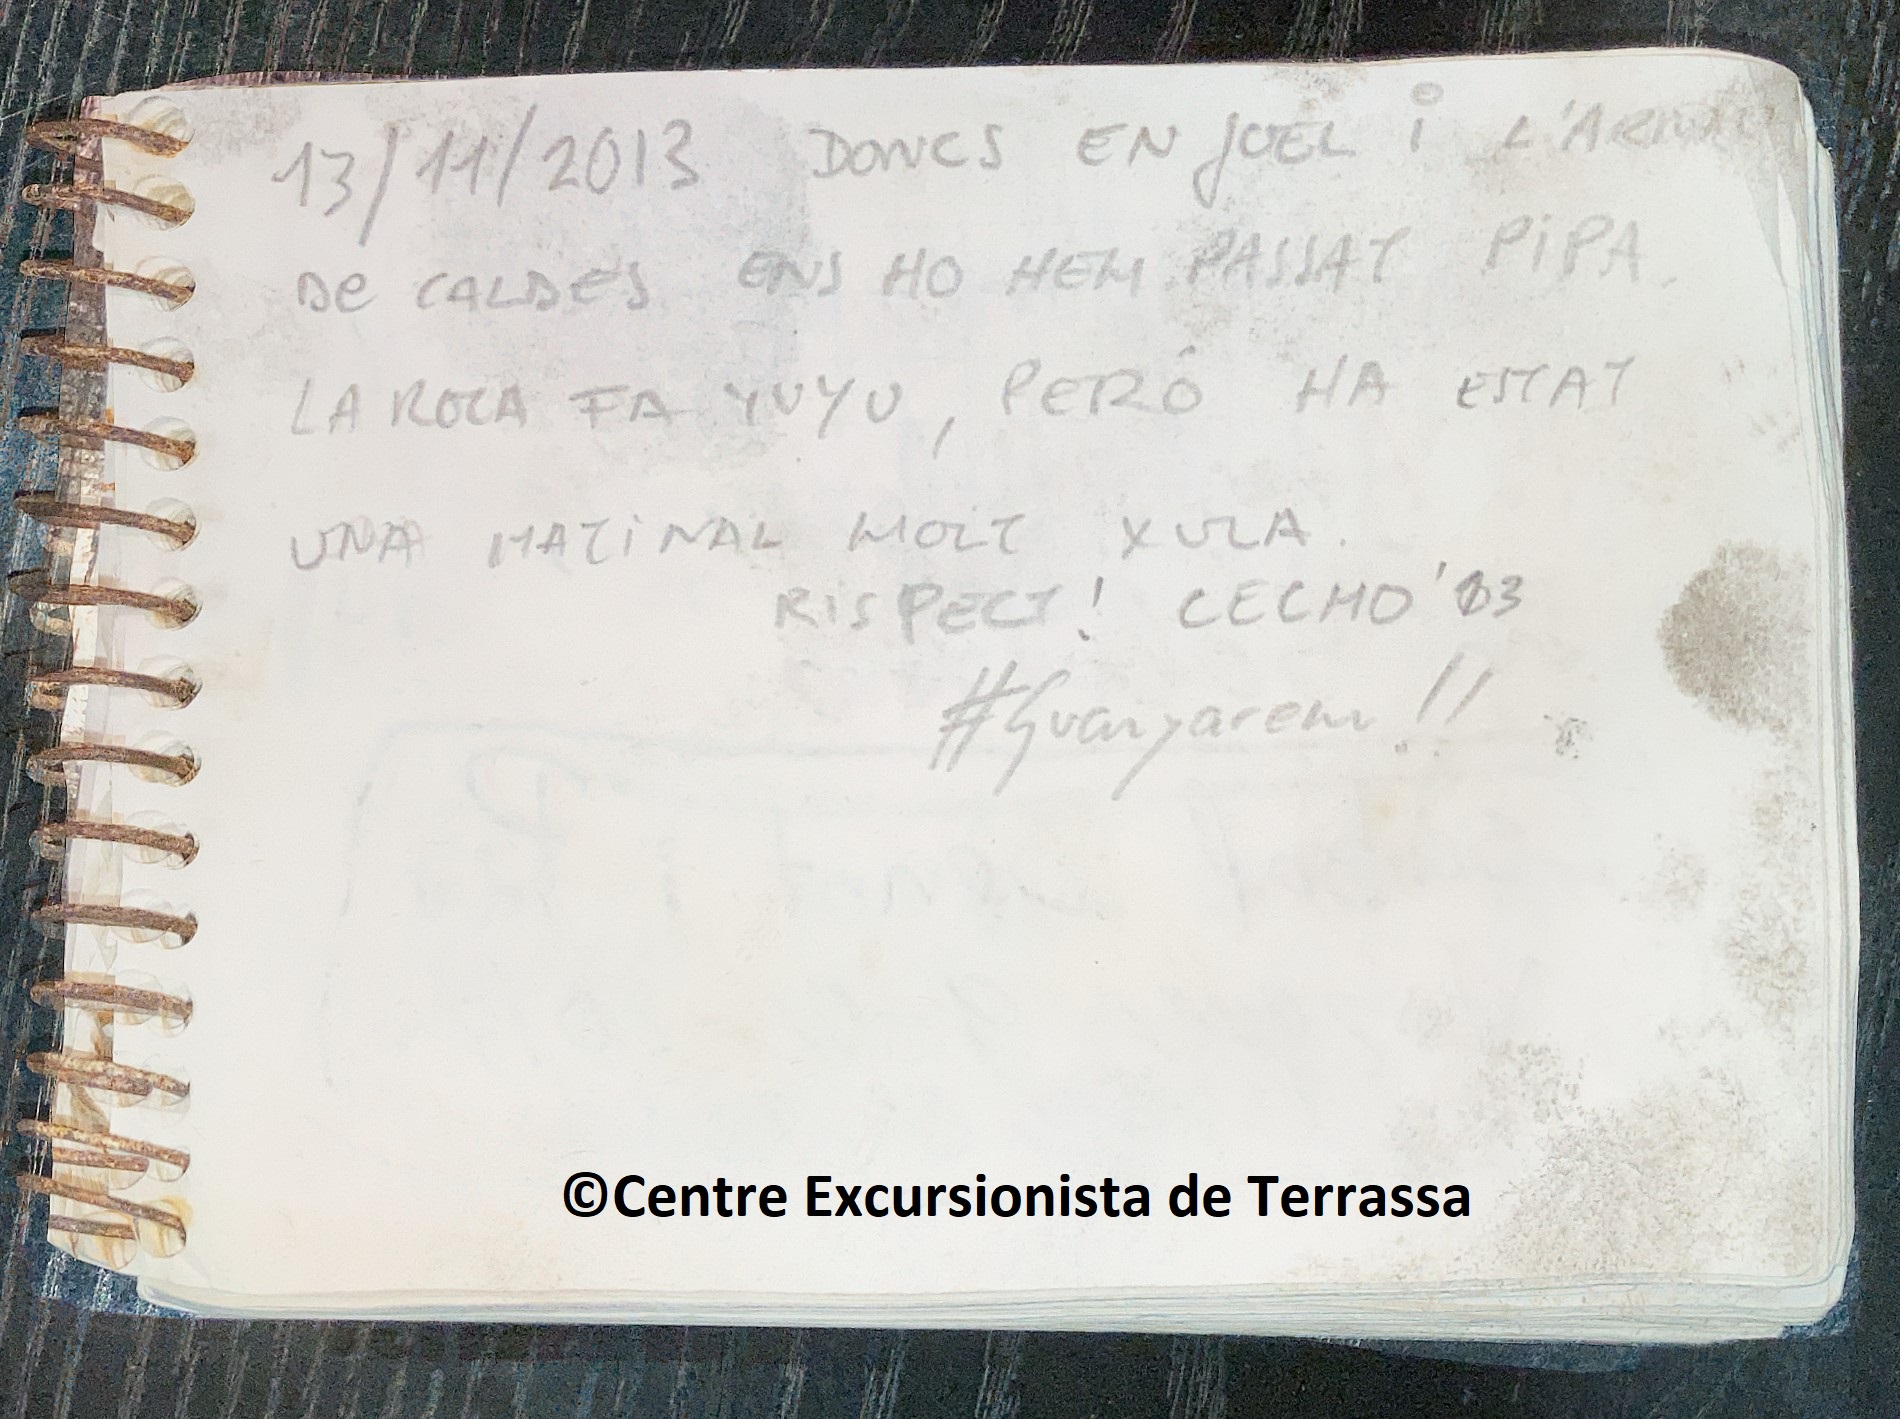 13/11/2013 DONCS EN JOEL I L'ARNAU
DE CALDES ENS HO HEM PASSAT PIPA.
LA ROCA FA YUYU, PERÓ HA ESTAT
UNA MATINAL MOLT XULA.
RISPECT! CECHO'03
#Guanyarem!!
©Centre Excursionista de Terrassa